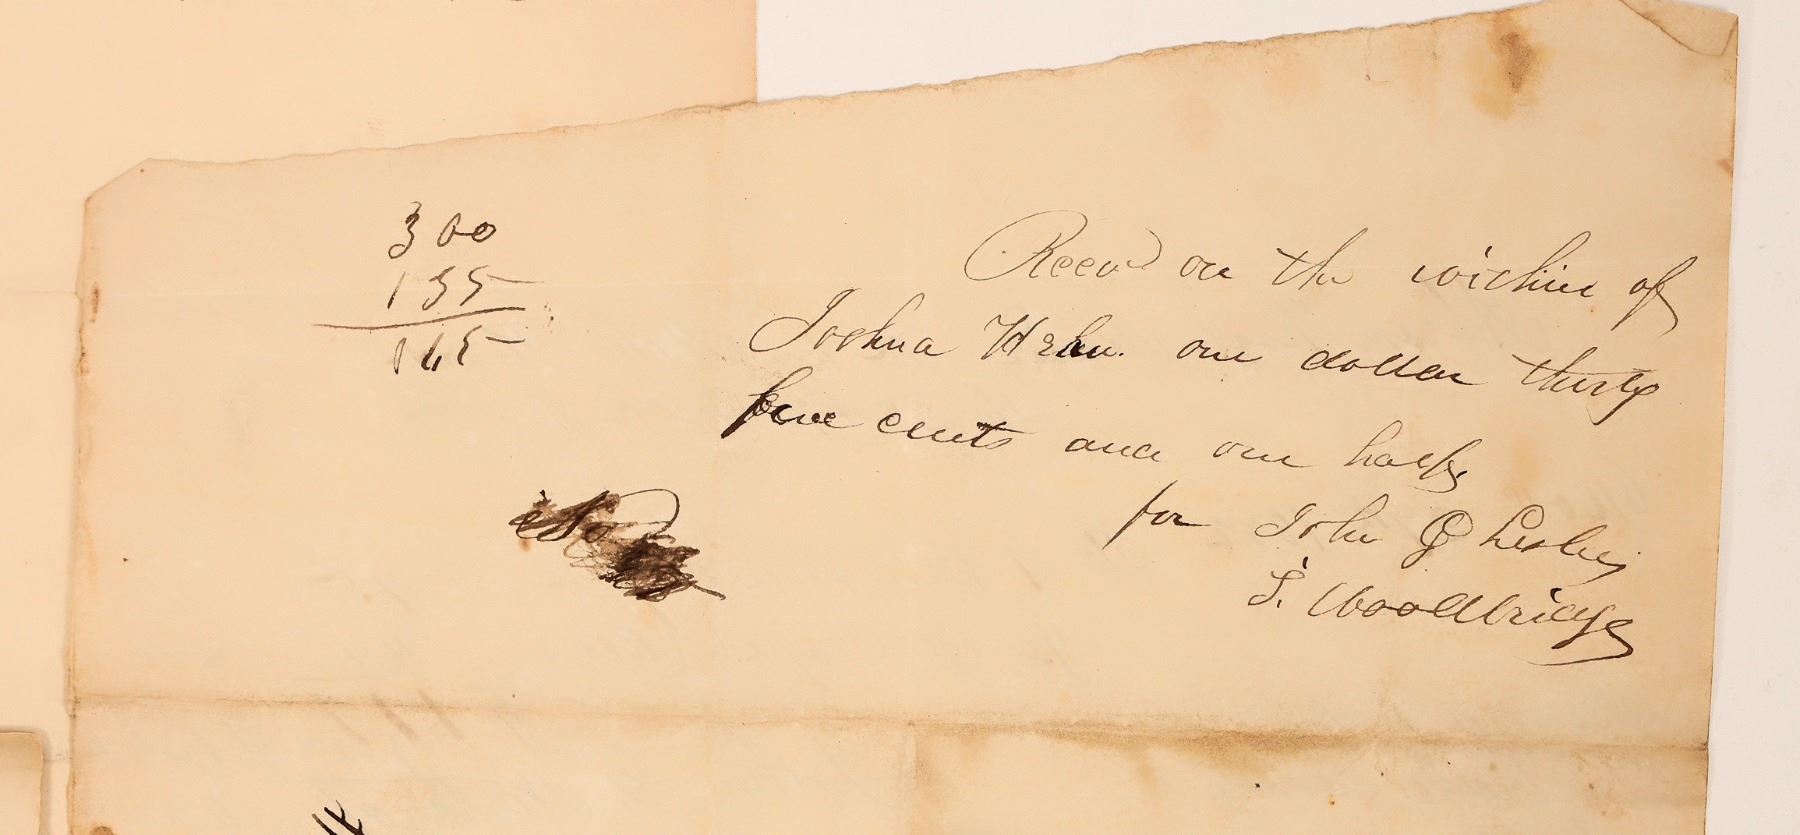 300
135
165
Recvd on the within of
Joshua one dollar thirty
five cents and one half
for John G Lesley
S. Woodbridge